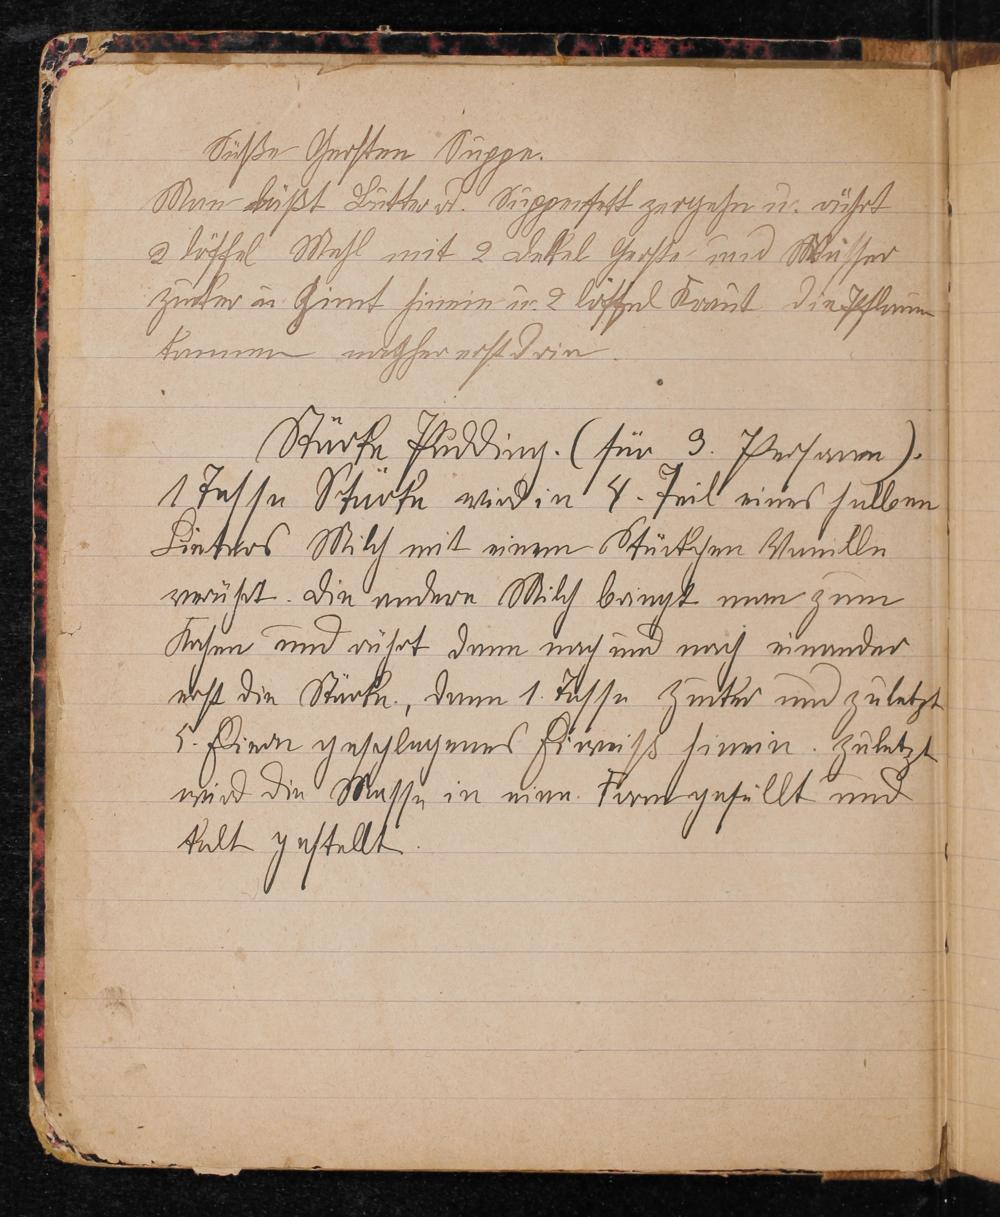 Süße Gersten Suppe.
Man läßt Butter od. Suppenfett zergehn u. rührt
2 löffel Mehl mit 2 Gerste und Wasser
zucker u Zimt hinein u. 2 löffel Kraut die Pflaum
kommen nachher erst drin.
Stärke Pudding. (für 3. Personen).
1 Tasse Stärke wird in 4. Teil eines halben
Lieters Milch mit einem Stückchen Vanille
verührt. Die andere Milch bringt man zum
Kochen und rührt dann nach und nach einander
erst die Stärke., dann 1. Tasse Zucker und zuletzt
5. Eiern geschlagenes Eiweiß hinein. Zuletzt
wird die Masse in eine. Form gefüllt und
kalt gestellt.